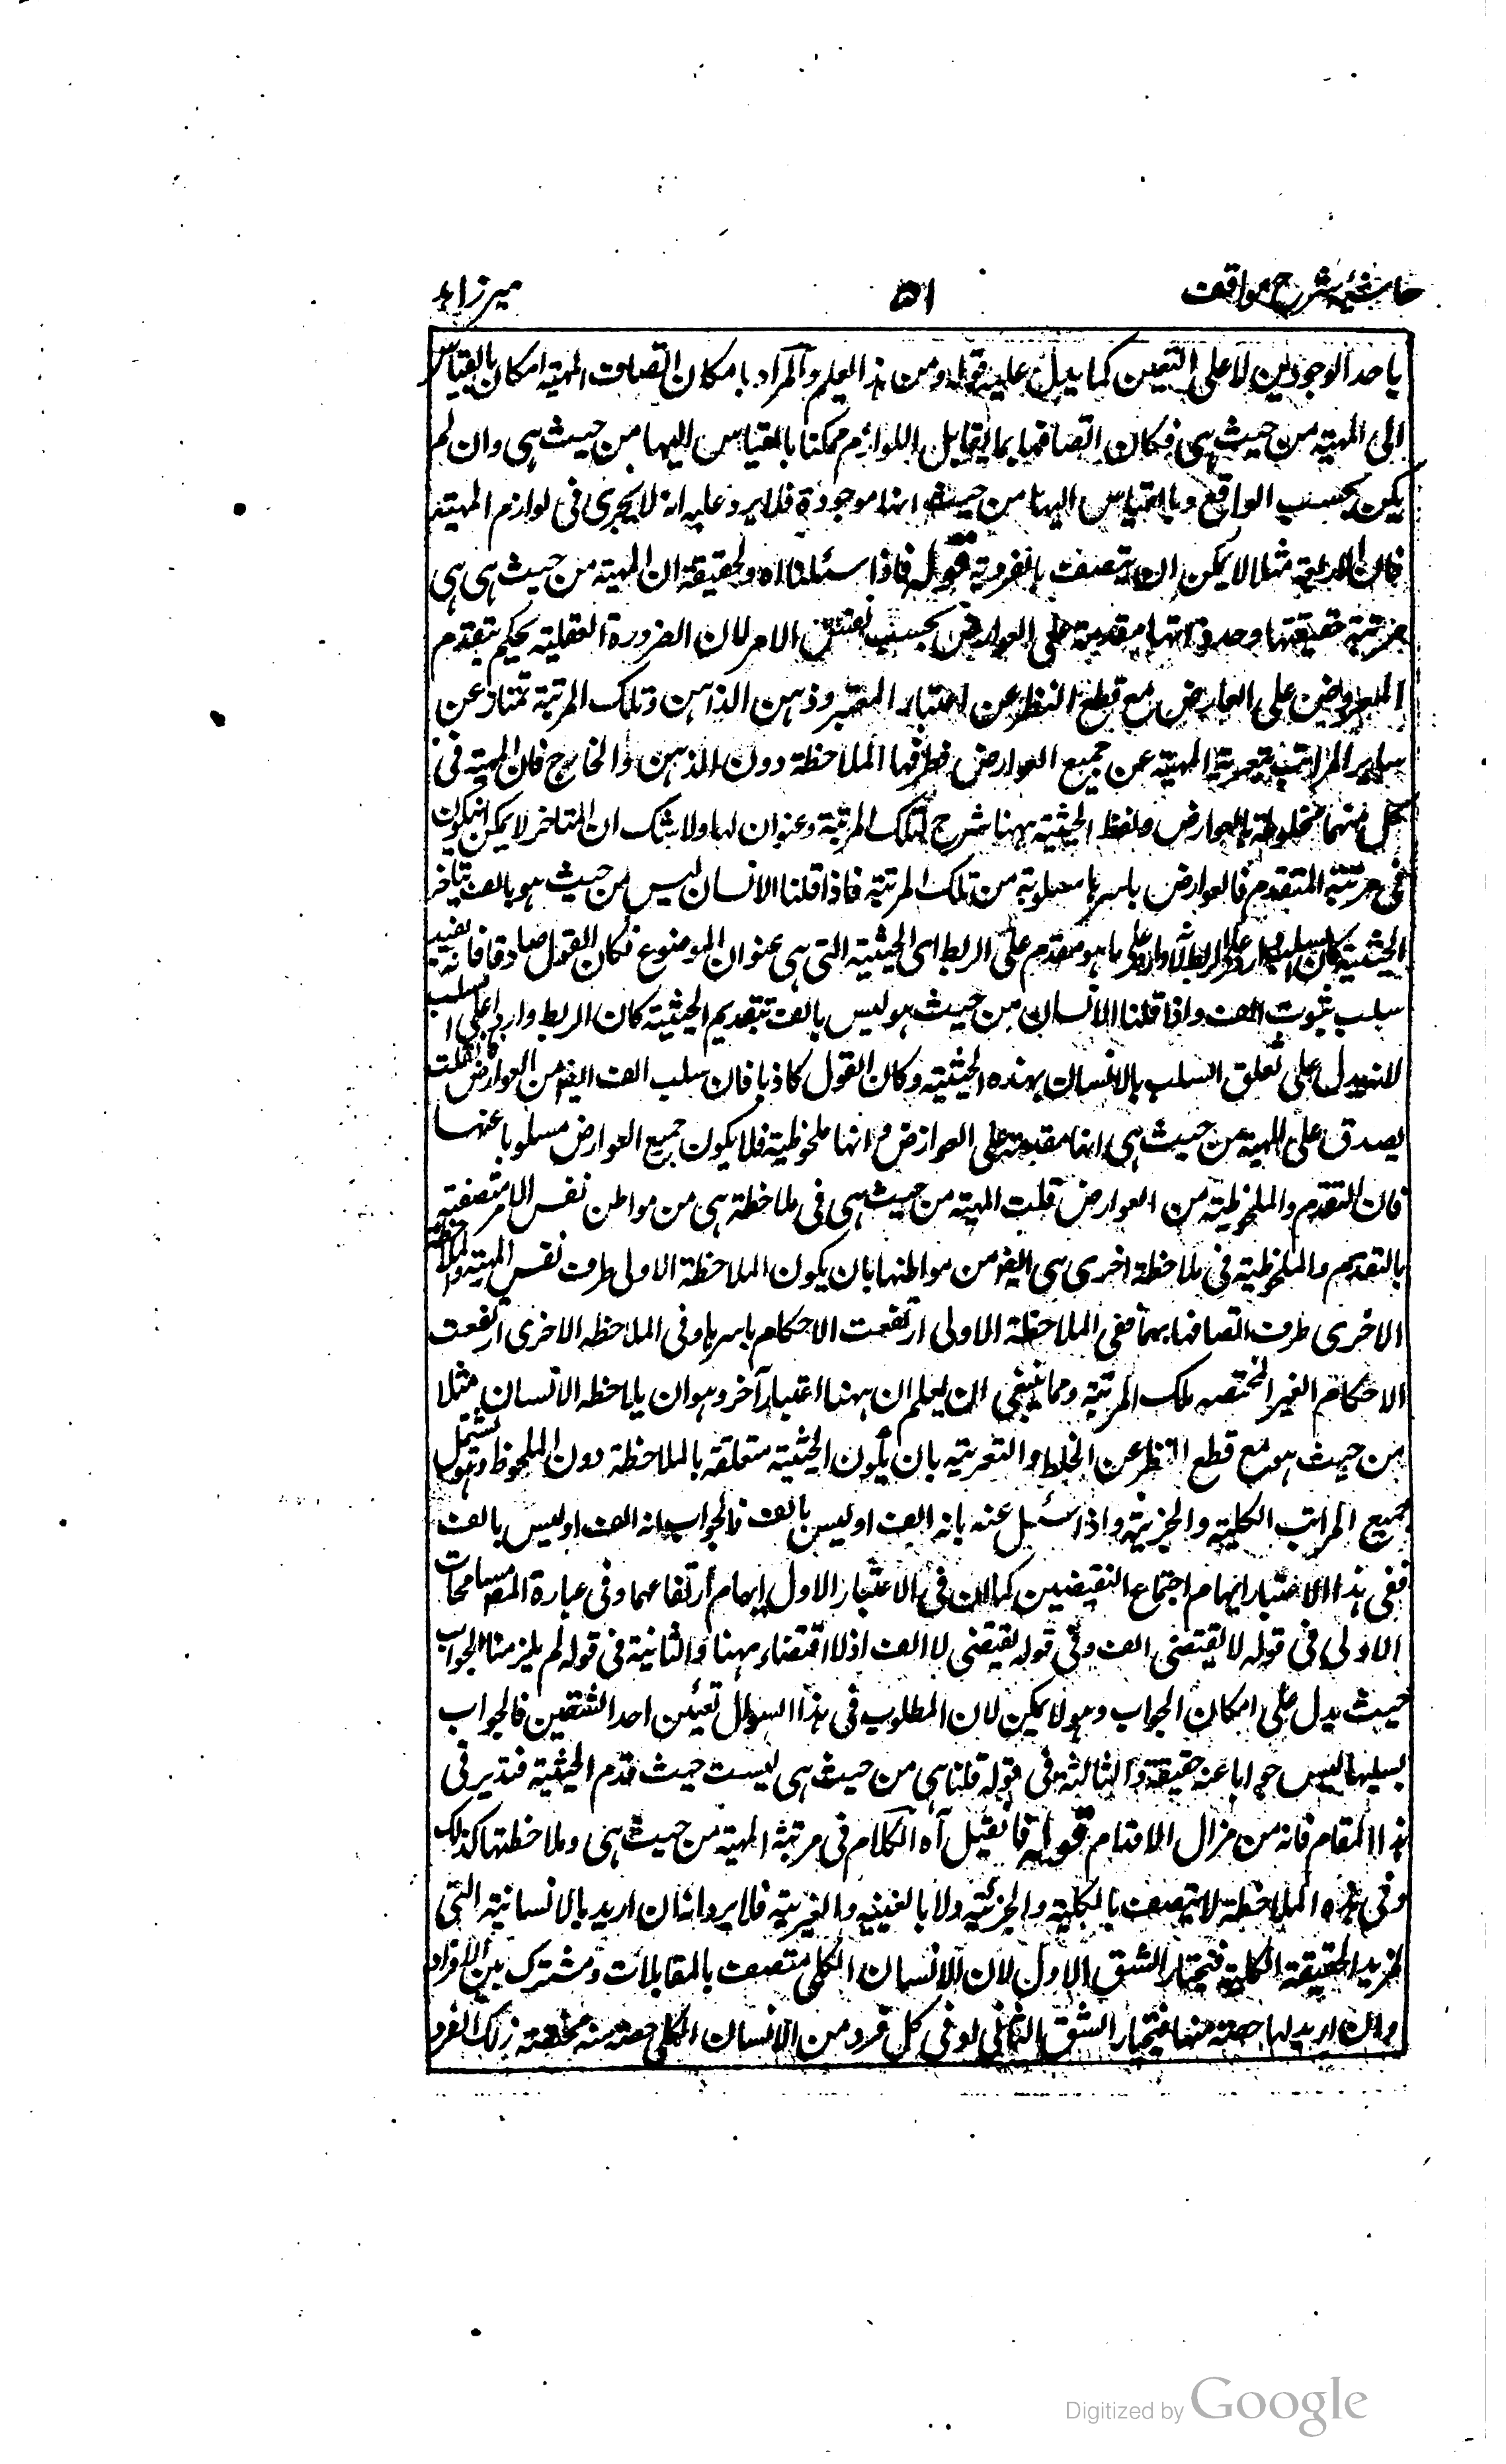 حاشیه شرح مواقف ۵۱ میرزاہد
باحد الوجودین لا علی التعین کما یدل علیه قوله ومن هذا یعلم والمراد بامکان اتصاف المهیة امکان بالقیاس
الی المهیة من حیث هی فکان اتصافها بما یقابل اللوازم ممکنا بالقیاس الیها من حیث هی وان لم
یکن بحسب الواقع وبالقیاس الیها من حیث انها موجودة فلا یرد علیه انه لا یجری فی لوازم المهیة
فان الاربعة مثلا لا یمکن ان یتصف بالفردیة قوله فاذا سئلنا اه وحقیقة ان المهیة من حیث هی هی
مرتبة حقیقتها وحد ذاتها مقدمة علی العوارض بحسب نفس الامر لان الضرورة العقلیة یحکم بتقدم
المعروض علی العارض مع قطع النظر عن اعتبار المعتبر وذهن الذاهن وتلک المرتبة تمتاز عن
سایر المراتب بتعریة المهیة عن جمیع العوارض فظرفها الملاحظة دون الذهن والخارج فان المهیة فی
کل منهما مخلوطة بالعوارض ولفظ الحیثیة ههنا شرح لتلک المرتبة وعنوان لها ولا شک ان المتاخر لا یمکن ان یکون
فی مرتبة المتقدم فالعوارض باسرها مسلوبة من تلک المرتبة فاذا قلنا الانسان لیس من حیث هو بالف بتاخر
الحیثیة کان السلب واردا علی الربط لانه وارد علی ما هو مقدم علی الربط ای الحیثیة التی هی عنوان الموضوع فکان القول صادقا فانه یفید
سلب ثبوت الف واذا قلنا الانسان من حیث هو لیس بالف بتقدیم الحیثیة کان الربط واردا علی السلب
لانه یدل علی تعلق السلب بالانسان بهذه الحیثیة وکان القول کاذبا فان سلب الف ایضا من العوارض فان قلت
یصدق علی المهیة من حیث هی انها مقدمة علی العوارض وانها ملحوظیة فلا یکون جمیع العوارض مسلوبا عنها
فان التقدم والملحوظیة من العوارض قلت المهیة من حیث هی فی ملاحظة هی من مواطن نفس الامر متصفة
بالتقدم والملحوظیة فی ملاحظة اخری هی ایضا من مواطنها بان یکون الملاحظة الاولی ظرف نفس المهیة والملاحظة
الاخری ظرف اتصافها بهما ففی الملاحظة الاولی ارتفعت الاحکام باسرها وفی الملاحظه الاخری ارتفعت
الاحکام الغیر المختصه بتلک المرتبة ومما ینبغی ان یعلم ان ههنا اعتبارا آخر وهو ان یلاحظ الانسان مثلا
من حیث هو مع قطع النظر عن الخلط والتعریة بان یکون الحیثیة متعلقة بالملاحظة دون الملحوظ وهو یشتمل
جمیع المراتب الکلیة والجزئیة واذا سئل عنه بانه الف او لیس بالف فالجواب انه الف او لیس بالف
ففی هذا الاعتبار ایهام اجتماع النقیضین کما ان فی الاعتبار الاول ایهام ارتفاعهما وفی عبارة المصـ مسامحات
الاولی فی قوله لا یقتضی الف وفی قوله یقتضی لا الف اذ لا اقتضاء ههنا والثانیة فی قوله لم یلزمنا الجواب
حیث یدل علی امکان الجواب وهو لا یمکن لان المطلوب فی هذا السوال تعیین احد الشقین فالجواب
بسلبهما لیس جوابا عنه حقیقة والثالثة فی قوله قلنا هی من حیث هی لیست حیث قدم الحیثیة فتدبر فی
هذا المقام فانه من مزال الاقدام قوله فان قیل آه الکلام فی مرتبة المهیة من حیث هی وملاحظتها کذلک
وفی هذه الملاحظة لا یتصف بالکلیة والجزئیة ولا بالعینیة والغیریة فلا یرد انه ان ارید بالانسانیة التی
لزید الحقیقة الکلیة فنختار الشق الاول لان الانسان الکلی متصف بالمقابلات ومشترک بین الافراد
وان ارید لها حصة منها فنختار الشق الثانی لو فی کل فرد من الانسان الکلی حصة منه مختصة بذلک الفرد
Digitized by Google